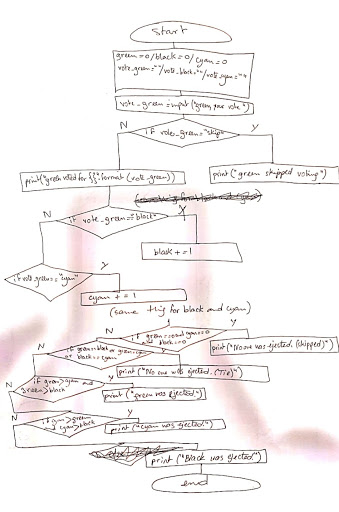 Start
green=0/black=0/cyan=0
vote_green=""/vote_black=""/vote_cyan=""
vote_green=input("green, your vote")
N
if vote_green="skip"
Y
print("green voted for {}".format(vote_green))
print("green skipped voting")
N
if vote_green=="black"
Y
black +=1
if vote_green=="cyan"
Y
cyan +=1
(same thing for black and cyan)
N
if green==0 and cyan==0
and black=0
Y
if green=black or green=cyan
or black==cyan
Y
print("No one was ejected. (skipped)")
N
print("No one was ejected. (Tie)")
if green>cyan and
green>black
Y
print("Green was ejected")
N
if cyan>green
and cyan>black
Y
print("Cyan was ejected")
N
print("Black was ejected")
end